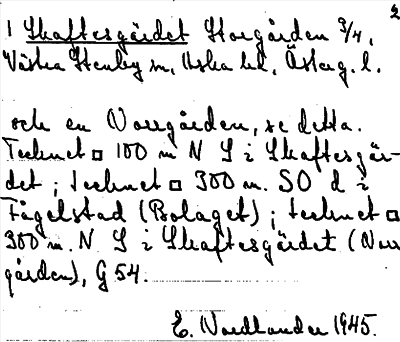 2
1 Skaftesgärdet Storgården 3/4,
Västra Stenby sn, Aska hd, Österg. l.
och en Norrgården, se detta.
Tecknet □ 100 m N S i Skaftesgär-
det ; tecknet □ 300 m. SO d i
Fågelstad (Bolaget) ; tecknet □
300 m. N S i Skaftesgärdet (Norr
gården), G 54.
E. Nordlander 1945.